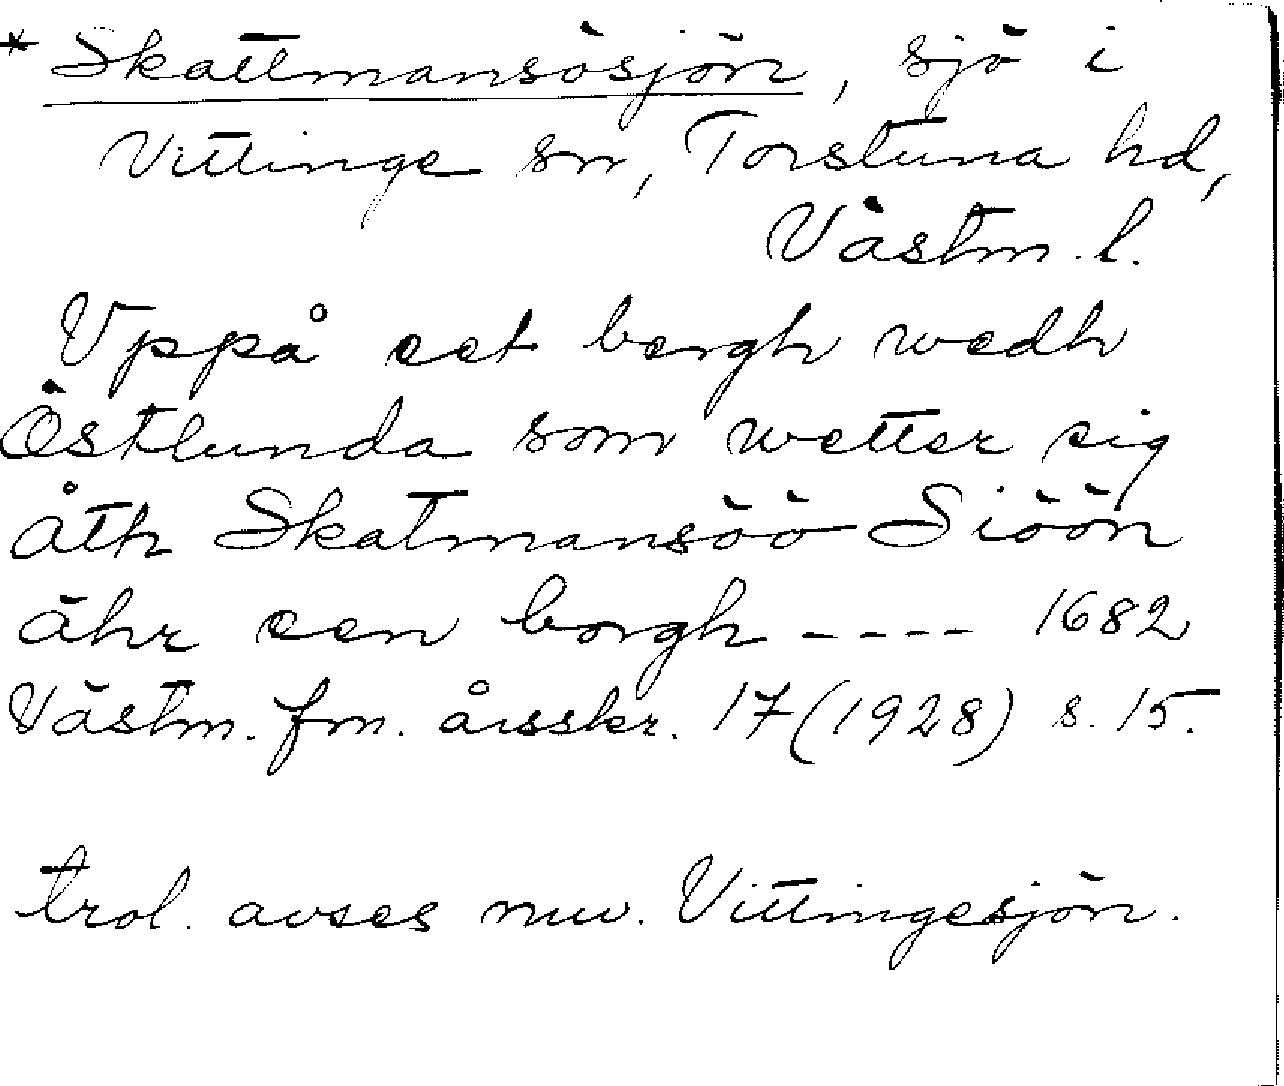 * Skattmansösjön, sjö i
Vittinge sn, Torstuna hd,
Västm. l.
Vppå eet bergh wedh
Östlunda som wetter sig
åth Skatmansöö Siöön
ähr een borgh ---- 1682
Västm. fm. årsskr. 17 (1928) s. 15.
trol. avses nuv. Vittingesjön.